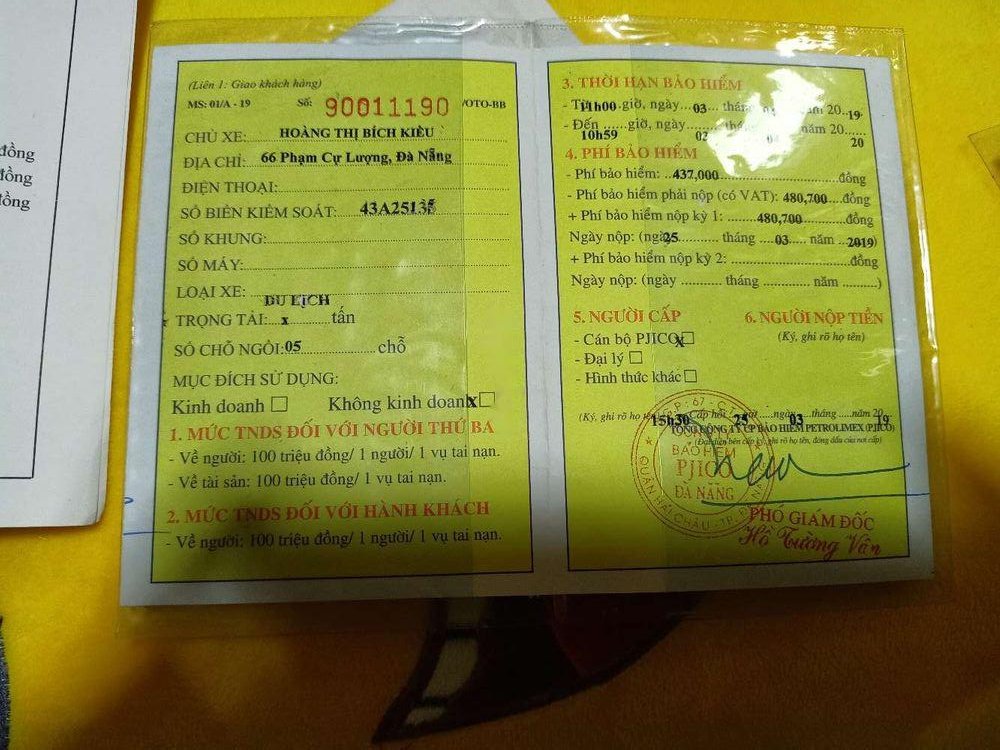 đồng
đồng
đồng
(Liên 1: Giao khách hàng)
MS: 01/A - 19 Số: 90011190 /OTO-BB
CHỦ XE: HOÀNG THỊ BÍCH KIỀU
ĐỊA CHỈ: 66 Phạm Cự Lượng, Đà Nẵng
ĐIỆN THOẠI:
SỐ BIỂN KIỂM SOÁT: 43A25135
SỐ KHUNG:
SỐ MÁY:
LOẠI XE: DU LỊCH
TRỌNG TẢI: x tấn
SỐ CHỖ NGỒI: 05 chỗ
MỤC ĐÍCH SỬ DỤNG:
Kinh doanh □ Không kinh doanh x□
1. MỨC TNDS ĐỐI VỚI NGƯỜI THỨ BA
- Về người: 100 triệu đồng/ 1 người/ 1 vụ tai nạn.
- Về tài sản: 100 triệu đồng/ 1 vụ tai nạn.
2. MỨC TNDS ĐỐI VỚI HÀNH KHÁCH
- Về người: 100 triệu đồng/ 1 người/ 1 vụ tai nạn.
3. THỜI HẠN BẢO HIỂM
- Từ 11h00 giờ, ngày 03 tháng 04 năm 2019
- Đến 10h59 giờ, ngày 02 tháng 04 năm 2020
4. PHÍ BẢO HIỂM
- Phí bảo hiểm: 437,000 đồng
- Phí bảo hiểm phải nộp (có VAT): 480,700 đồng
+ Phí bảo hiểm nộp kỳ 1: 480,700 đồng
Ngày nộp: (ngày 25 tháng 03 năm 2019)
+ Phí bảo hiểm nộp kỳ 2: đồng
Ngày nộp: (ngày tháng năm )
5. NGƯỜI CẤP 6. NGƯỜI NỘP TIỀN
- Cán bộ PJICO x□ (Ký, ghi rõ họ tên)
- Đại lý □
- Hình thức khác □
(Ký, ghi rõ họ tên) Cấp hồi 15h30 ngày 25 tháng 03 năm 2019
TỔNG CÔNG TY CP BẢO HIỂM PETROLIMEX (PJICO)
(Đại diện bên cấp ký, ghi rõ họ tên, đóng dấu của nơi cấp)
BẢO HIỂM
PJICO
ĐÀ NẴNG
QUẬN HẢI CHÂU - TP.
PHÓ GIÁM ĐỐC
Hồ Tường Vân